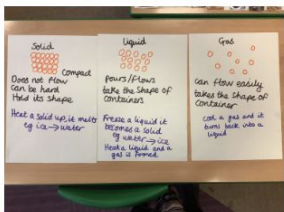 Solid
Compact
Does not flow
can be hard
Hold its shape
Heat a solid up, it melts
eg ice → water
Liquid
pours/flows
take the shape of
containers
Freeze a liquid it
becomes a solid
eg water → ice
Heat a liquid and a
gas is formed
Gas
can flow easily
takes the shape of
container
cool a gas and it
turns back into a
liquid